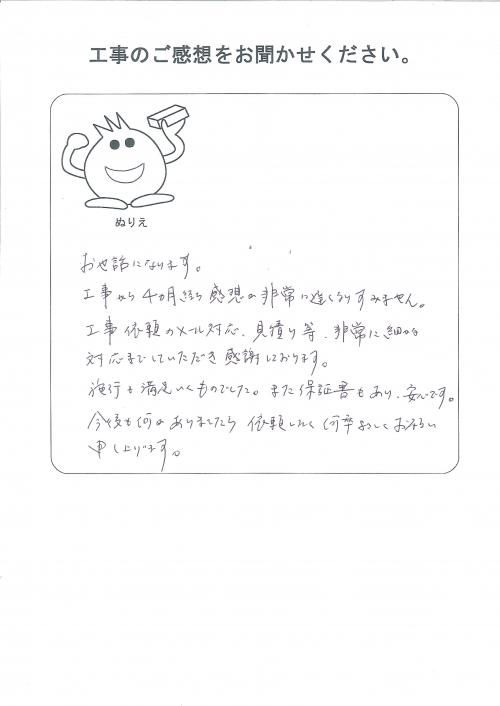 工事のご感想をお聞かせください。
ぬりえ
お世話になります。
工事から4カ月経ち感想が非常に遅くなりすみません。
工事依頼のメール対応、見積り等、非常に細かな
対応までしていただき感謝しております。
施行も満足いくものでした。また保証書もあり、安心です。
今後も何かありましたら依頼したく何卒よろしくお願い
申し上げます。